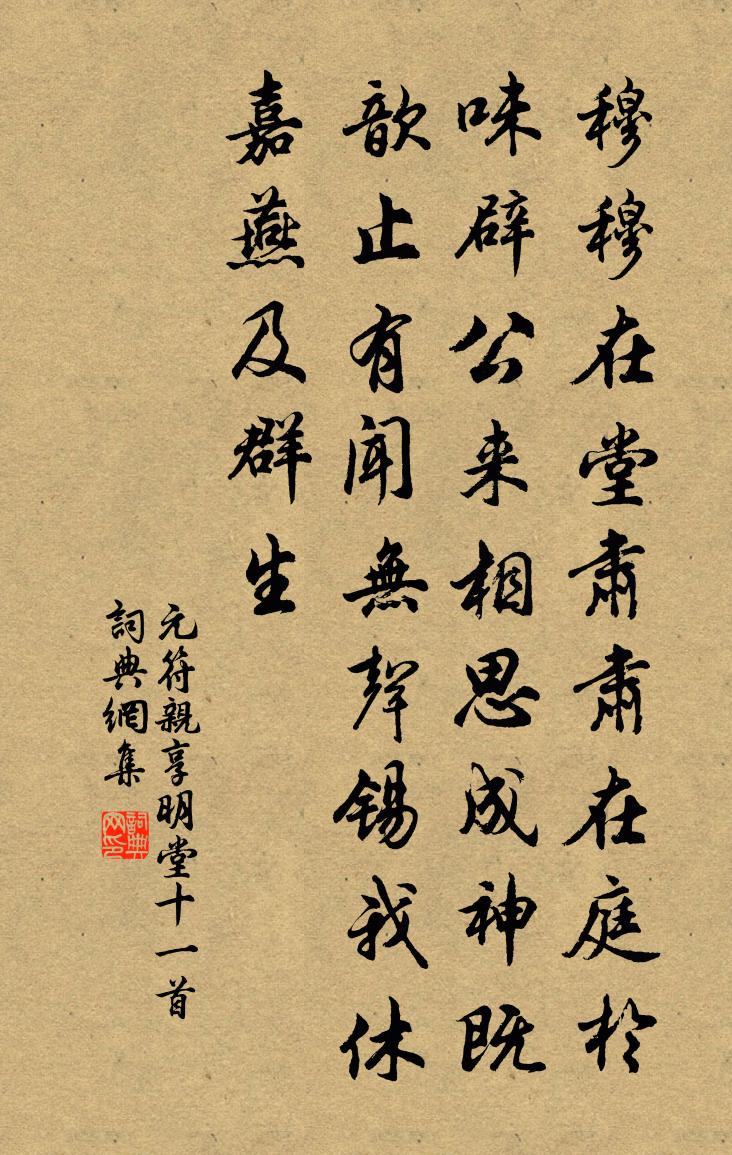 穆穆在堂肅肅在庭於
味辟公来相思成神既
歆止有聞無聲錫我休
嘉燕及群生
元符親享明堂十一首
詞典網集
詞典网印